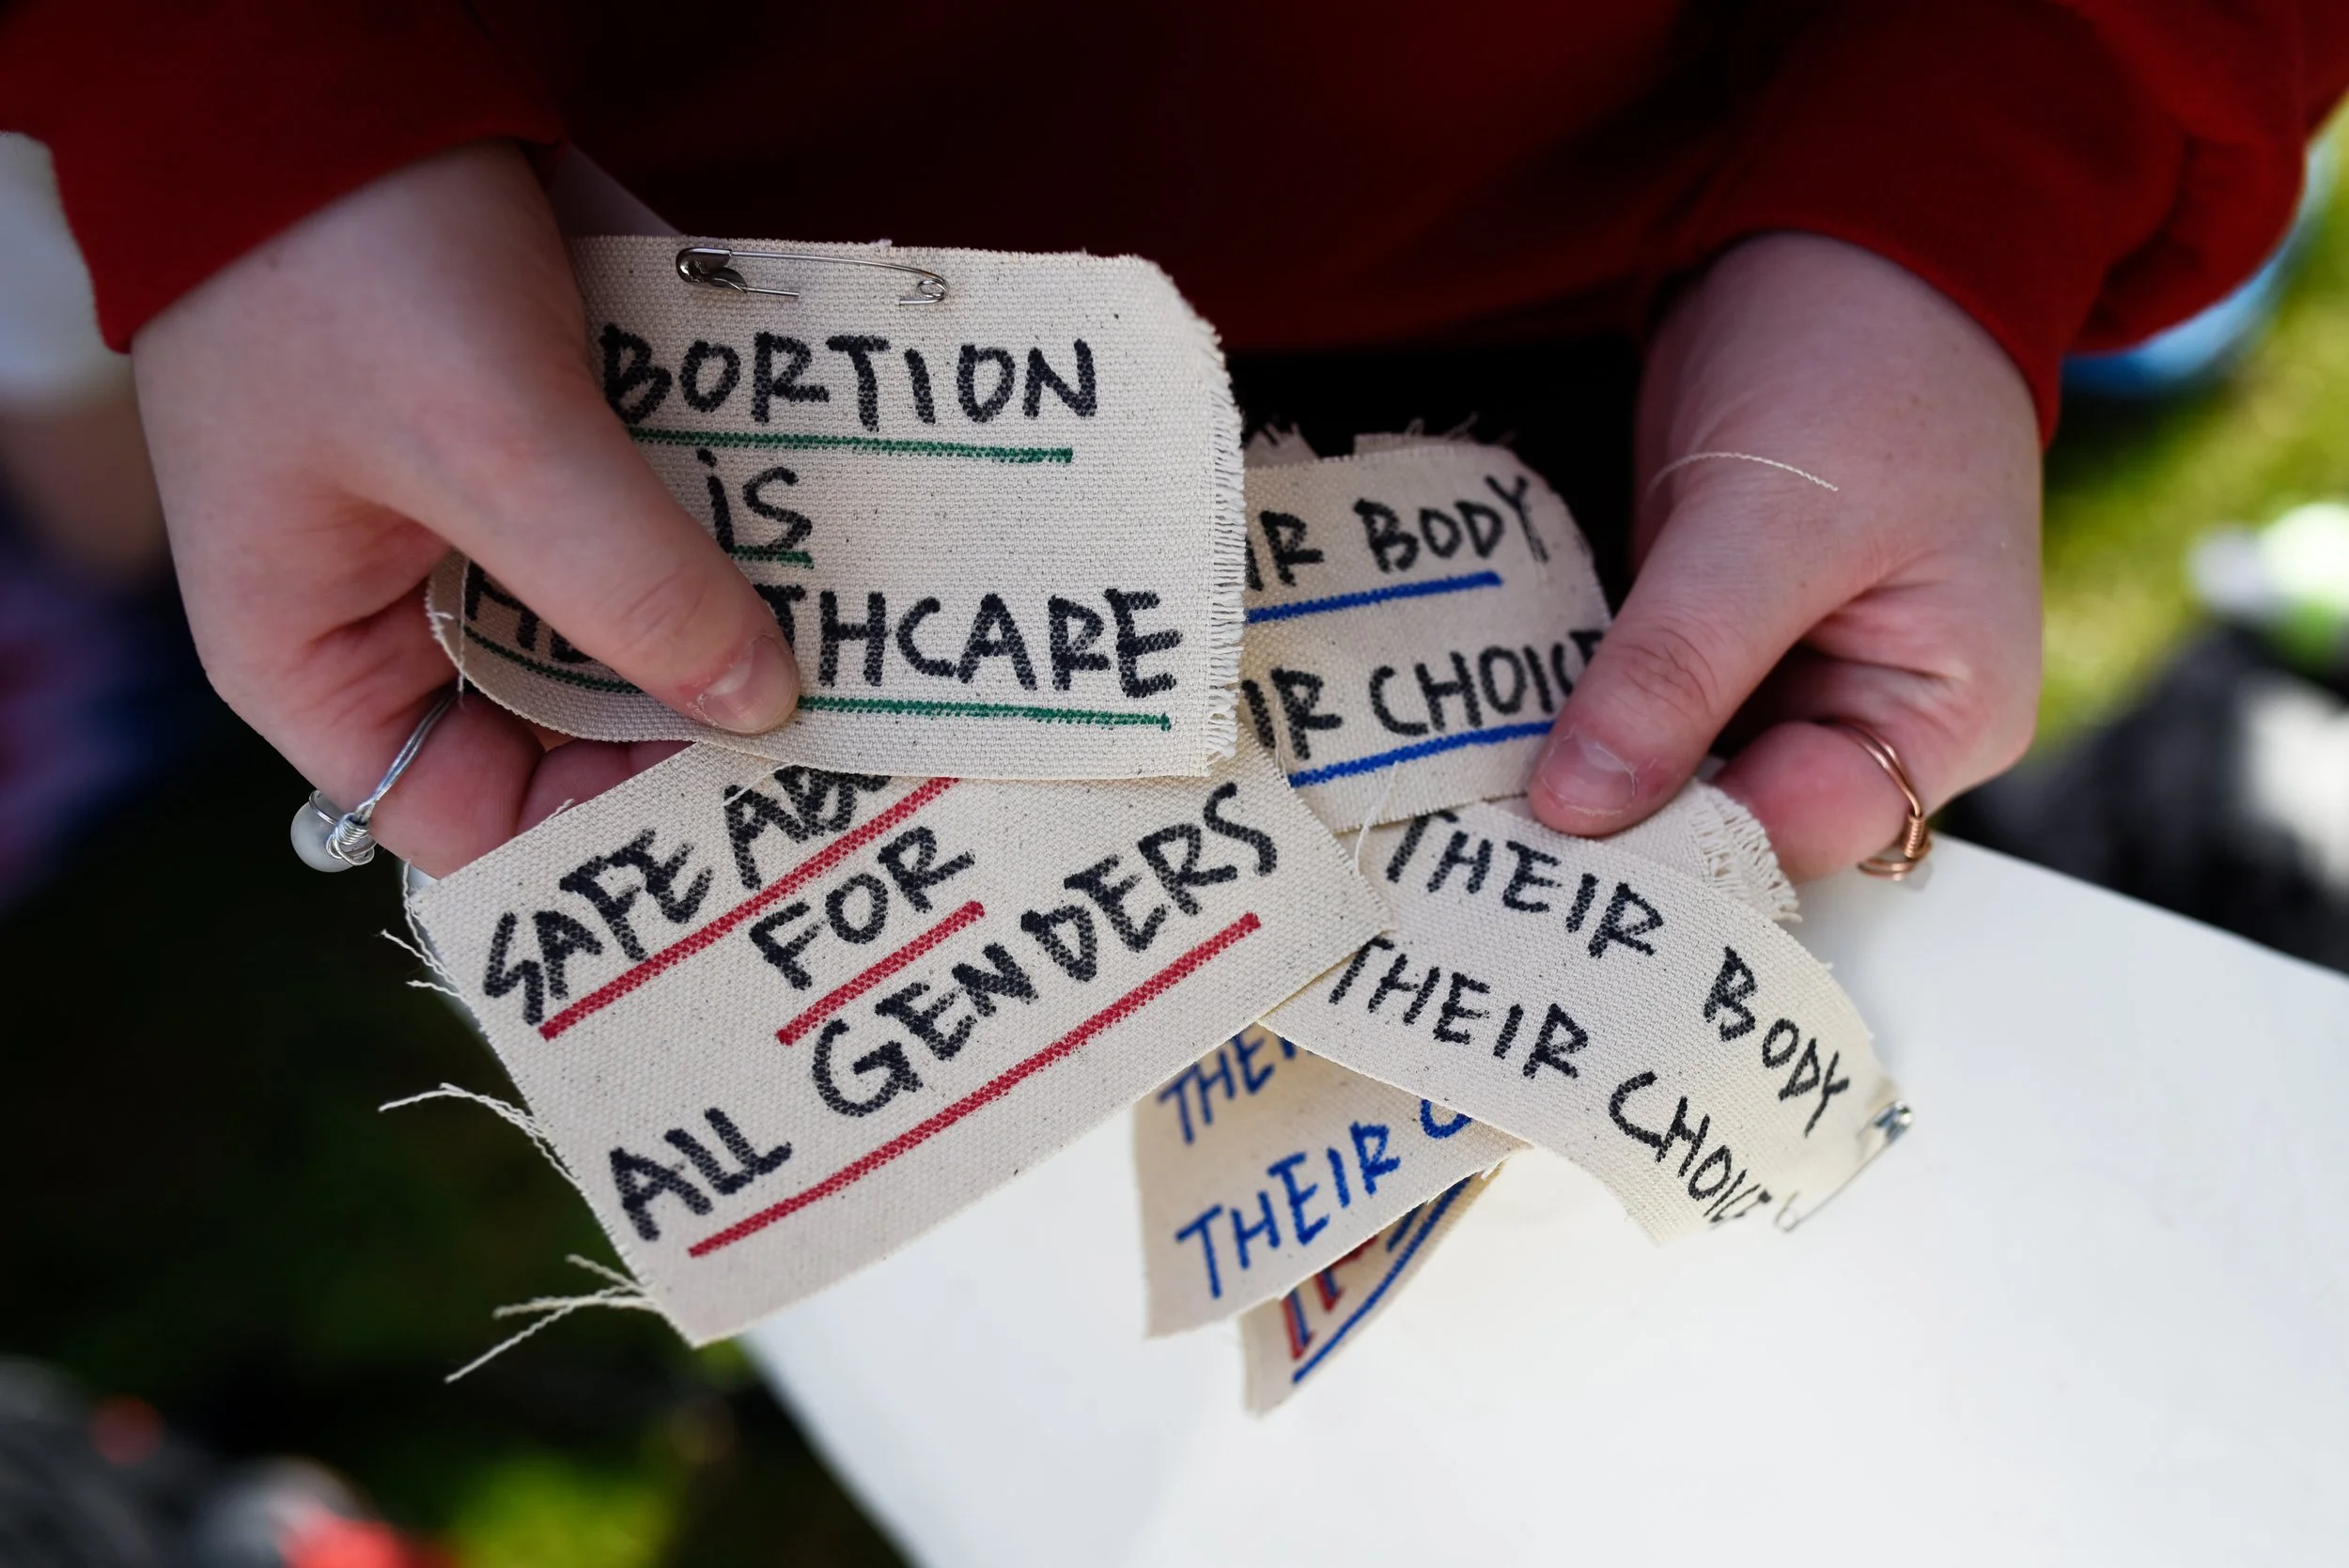 BORTION
is
THCARE
IR BODY
IR CHOICE
SAFE ABO
FOR
ALL GENDERS
THEIR BODY
THEIR CHOICE
THEI
THEIR C